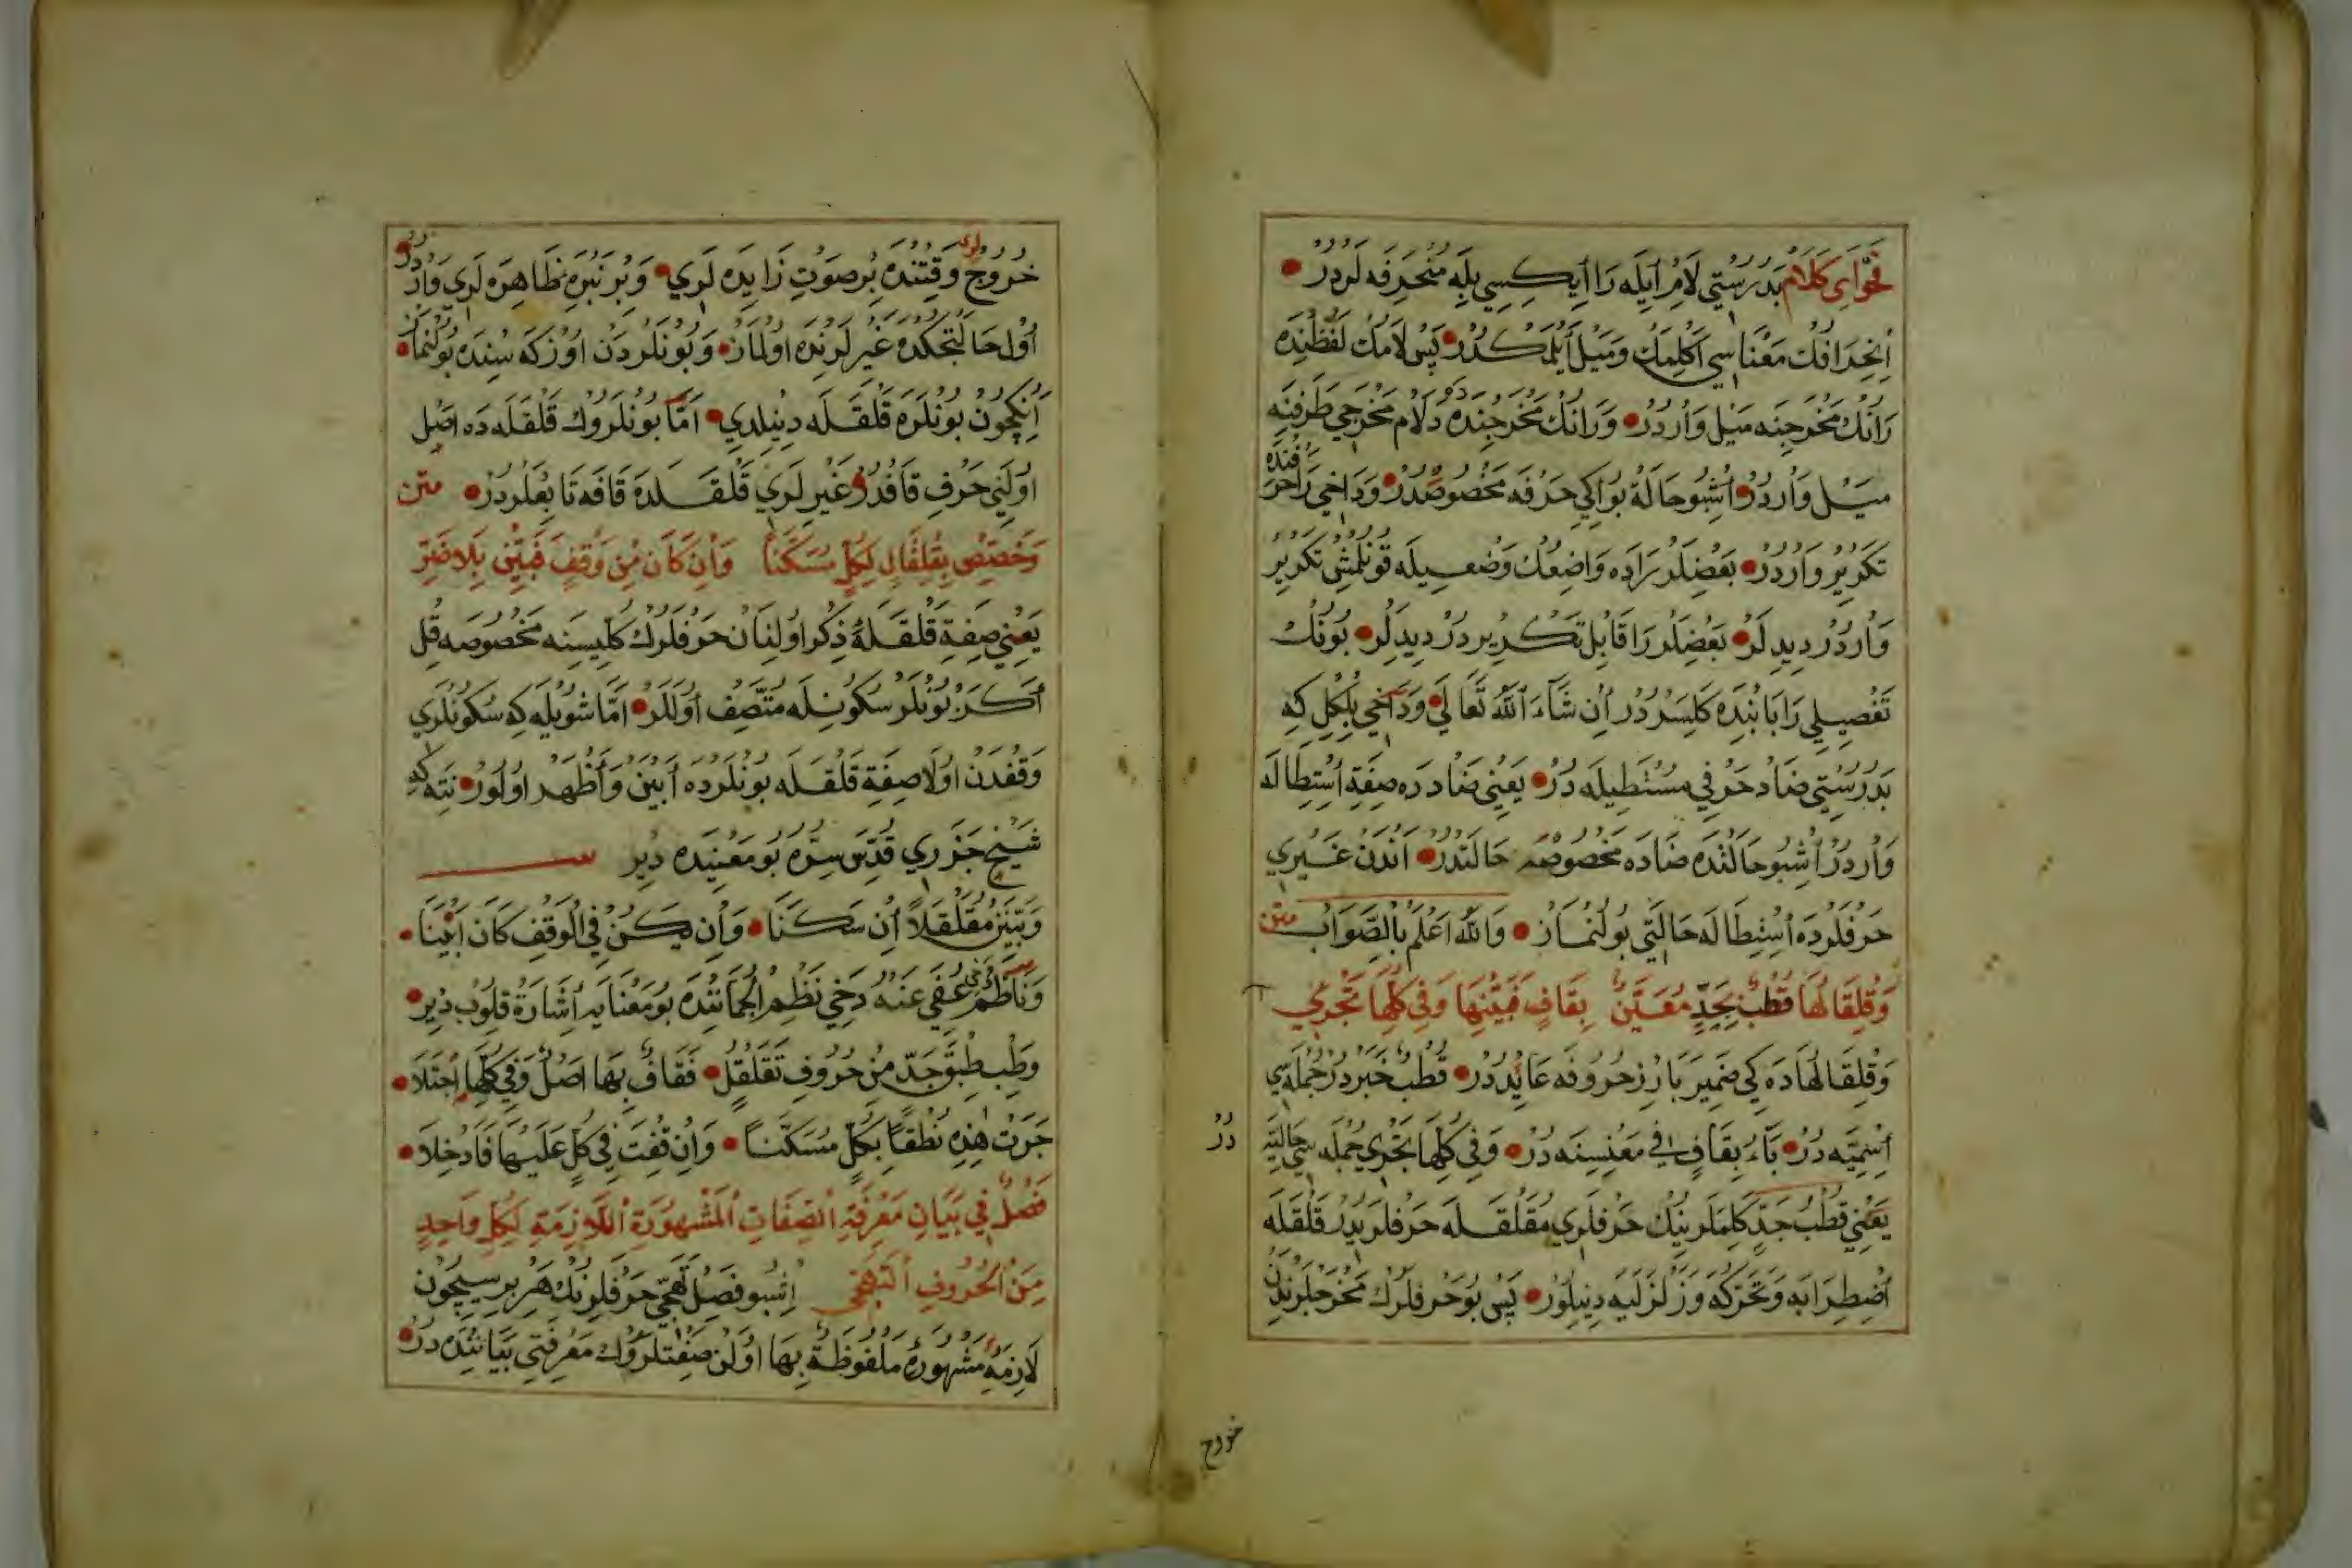 فَحْوَاىِ كَلَامْ بَدُرُسْتِي لَامْ اَيْلَه رَا اَيْكِيسِي بِلَه مُنْحَرِفَه لَرْدُرْ
اِنْحِرَافُكْ مَعْنَاسِي اَكْلِمَكْ وَمَيْلْ اَيْلَمَكْدُرْ پَسْ لَامُكْ لَفْظِنْدَه
رَانُكْ مَخْرَجِنَه مَيْلْ وَارْدُرْ وَرَانُكْ مَخْرَجِنْدَه دَ لَامْ مَخْرَجِي طَرَفِنَه
مَيْلْ وَارْدُرْ اُشْبُو حَالَهْ بُو اِكِي حَرْفَه مَخْصُوصْدُرْ وَدَاخِي رَا حَرْفِنْدَه
تَكْرِيرْ وَارْدُرْ بَعْضِلَرْ رَادَه وَاضِعُكْ وَضْعِيلَه قُونُلْمُشْ تَكْرِيرْ
وَارْدُرْ دِيدِلَرْ بَعْضِلَرْ رَا قَابِلِ تَكْرِيرْدُرْ دِيدِلَرْ بُونُكْ
تَفْصِيلِي رَا بَابُنْدَه كَلِسَرْدُرْ اِنْ شَآءَ اللّٰهُ تَعَالَي وَدَاخِي بِلْكِلْ كِه
بَدُرُسْتِي ضَادْ حَرْفِي مُسْتَطِيلَه دُرْ يَعْنِي ضَادْ دَه صِفَةِ اِسْتِطَالَه
وَارْدُرْ اُشْبُو حَالَتْدَه ضَادَه مَخْصُوصْ حَالَتْدُرْ اَنْدَنْ غَيْرِي
حَرْفْلَرْدَه اِسْتِطَالَه حَالَتِي بُولُنْمَازْ وَاللّٰهُ اَعْلَمُ بِالصَّوَابْ متن
وَقَلْقَالُهَا قُطْبٌ بِجَدٍّ مُعَيَّنٌ بِقَافٍ فَبَيِّنْهَا وَفِي كُلِّهَا تَجْرِي
وَقَلْقَالُهَادَه كِي ضَمِيرِ بَارِزْ حُرُوفَه عَائِدْدُرْ قُطْبٌ خَبَرْدُرْ جُمْلَه سِي
اِسْمِيَّه دُرْ بَاءِ بِقَافٍ فِي مَعْنِسِنَه دُرْ وَفِي كُلِّهَا تَجْرِي جُمْلَه سِي حَالِيَّه دُرْ
يَعْنِي قُطْبُ جَدٍّ كَلِمَلَرِينِكْ حَرْفْلَرِي مُقَلْقَلَه حَرْفْلَرِيدُرْ قَلْقَلَه
اِضْطِرَابَه وَتَحَرُّكَه وَزَلْزَلَيَه دِينِلُورْ پَسْ بُو حَرْفْلَرُكْ مَخْرَجْلَرِنْدَنْ
خروج
خُرُوجْ لرى وَقْتِنْدَه بِرْ صَوْتِ زَايِدَه لَرِي وَبِرْ نَبْرَه ظَاهِرَه لَرِي وَارْدُرْ
اُوْلْ حَالَتْجِكْدَه غَيْرِلَرِنْدَه اُولْمَازْ وَبُونْلَرْدَنْ اُوزْكَه سِنْدَه بُولُنْمَازْ
اَنِكِچُونْ بُونْلَرَه قَلْقَلَه دِينِلْدِي اَمَّا بُونْلَرُوكْ قَلْقَلَه دَه اَصْلْ
اُولَنِي حَرْفِ قَافْدُرْ غَيْرِلَرِي قَلْقَلَدَه قَافَه تَابِعْلَرْدُرْ متن
وَخَصِّصْ بِقَلْقَالٍ لِكُلٍّ مُسَكَّنَا وَاِنْ كَانَ مِنْ وَقْفٍ فَبَيِّنْ بِلَا ضَرِّ
يَعْنِي صِفَةِ قَلْقَلَهْ ذِكْرْ اُولِنَانْ حَرْفْلَرُكْ كُلِّيسِنَه مَخْصُوصَه قِلْ
اَكَرْ بُونْلَرْ سُكُونِلَه مُتَّصِفْ اُولَلَرْ اَمَّا شُويْلَه كِه سُكُونْلَرِي
وَقْفْدَنْ اُولَا صِفَةِ قَلْقَلَه بُونْلَرْدَه اَبْيَنْ وَاَظْهَرْ اُولُورْ نِتَه كِه
شَيْخْ جَزَرِي قُدِّسَ سِرُّهُ بُو مَعْنِيدَه دِيرْ
وَبَيِّنَنْ مُقَلْقَلًا اِنْ سَكَنَا وَاِنْ يَكُنْ فِي الْوَقْفِ كَانَ اَبْيَنَا
وَنَاظِمْ عُفِيَ عَنْهُ دَخِي نَظْمِ الْجُمَانِنْدَه بُو مَعْنَايَه اِشَارَةْ قِلُوبْ دِيرْ
وَطِبْ طِبْقَ جَدٍّ مِنْ حُرُوفِ تَقَلْقُلٍ فَقَافٌ بِهَا اَصْلٌ وَفِي كُلِّهَا اجْتَلَا
جَرَتْ هٰذِهِ نُطْقًا بِكُلٍّ مُسَكَّنًا وَاِنْ قِفْتَ فِي كُلٍّ عَلَيْهَا فَادْخِلَا
فَصْلٌ فِي بَيَانِ مَعْرِفَةِ الصِّفَاتِ الْمَشْهُورَةِ اللَّازِمَةِ لِكُلِّ وَاحِدٍ
مِنَ الْحُرُوفِ التَّهَجِّي اِشْبُو فَصْلْ تَهَجِّي حَرْفْلَرِنُكْ هَرْ بِرِسِيچُونْ
لَازِمَه مَشْهُورَهٔ مَلْفُوظَةٌ بِهَا اُولَنْ صِفَتْلَرُوكْ مَعْرِفَتِي بَيَانِنْدَه دُرْ